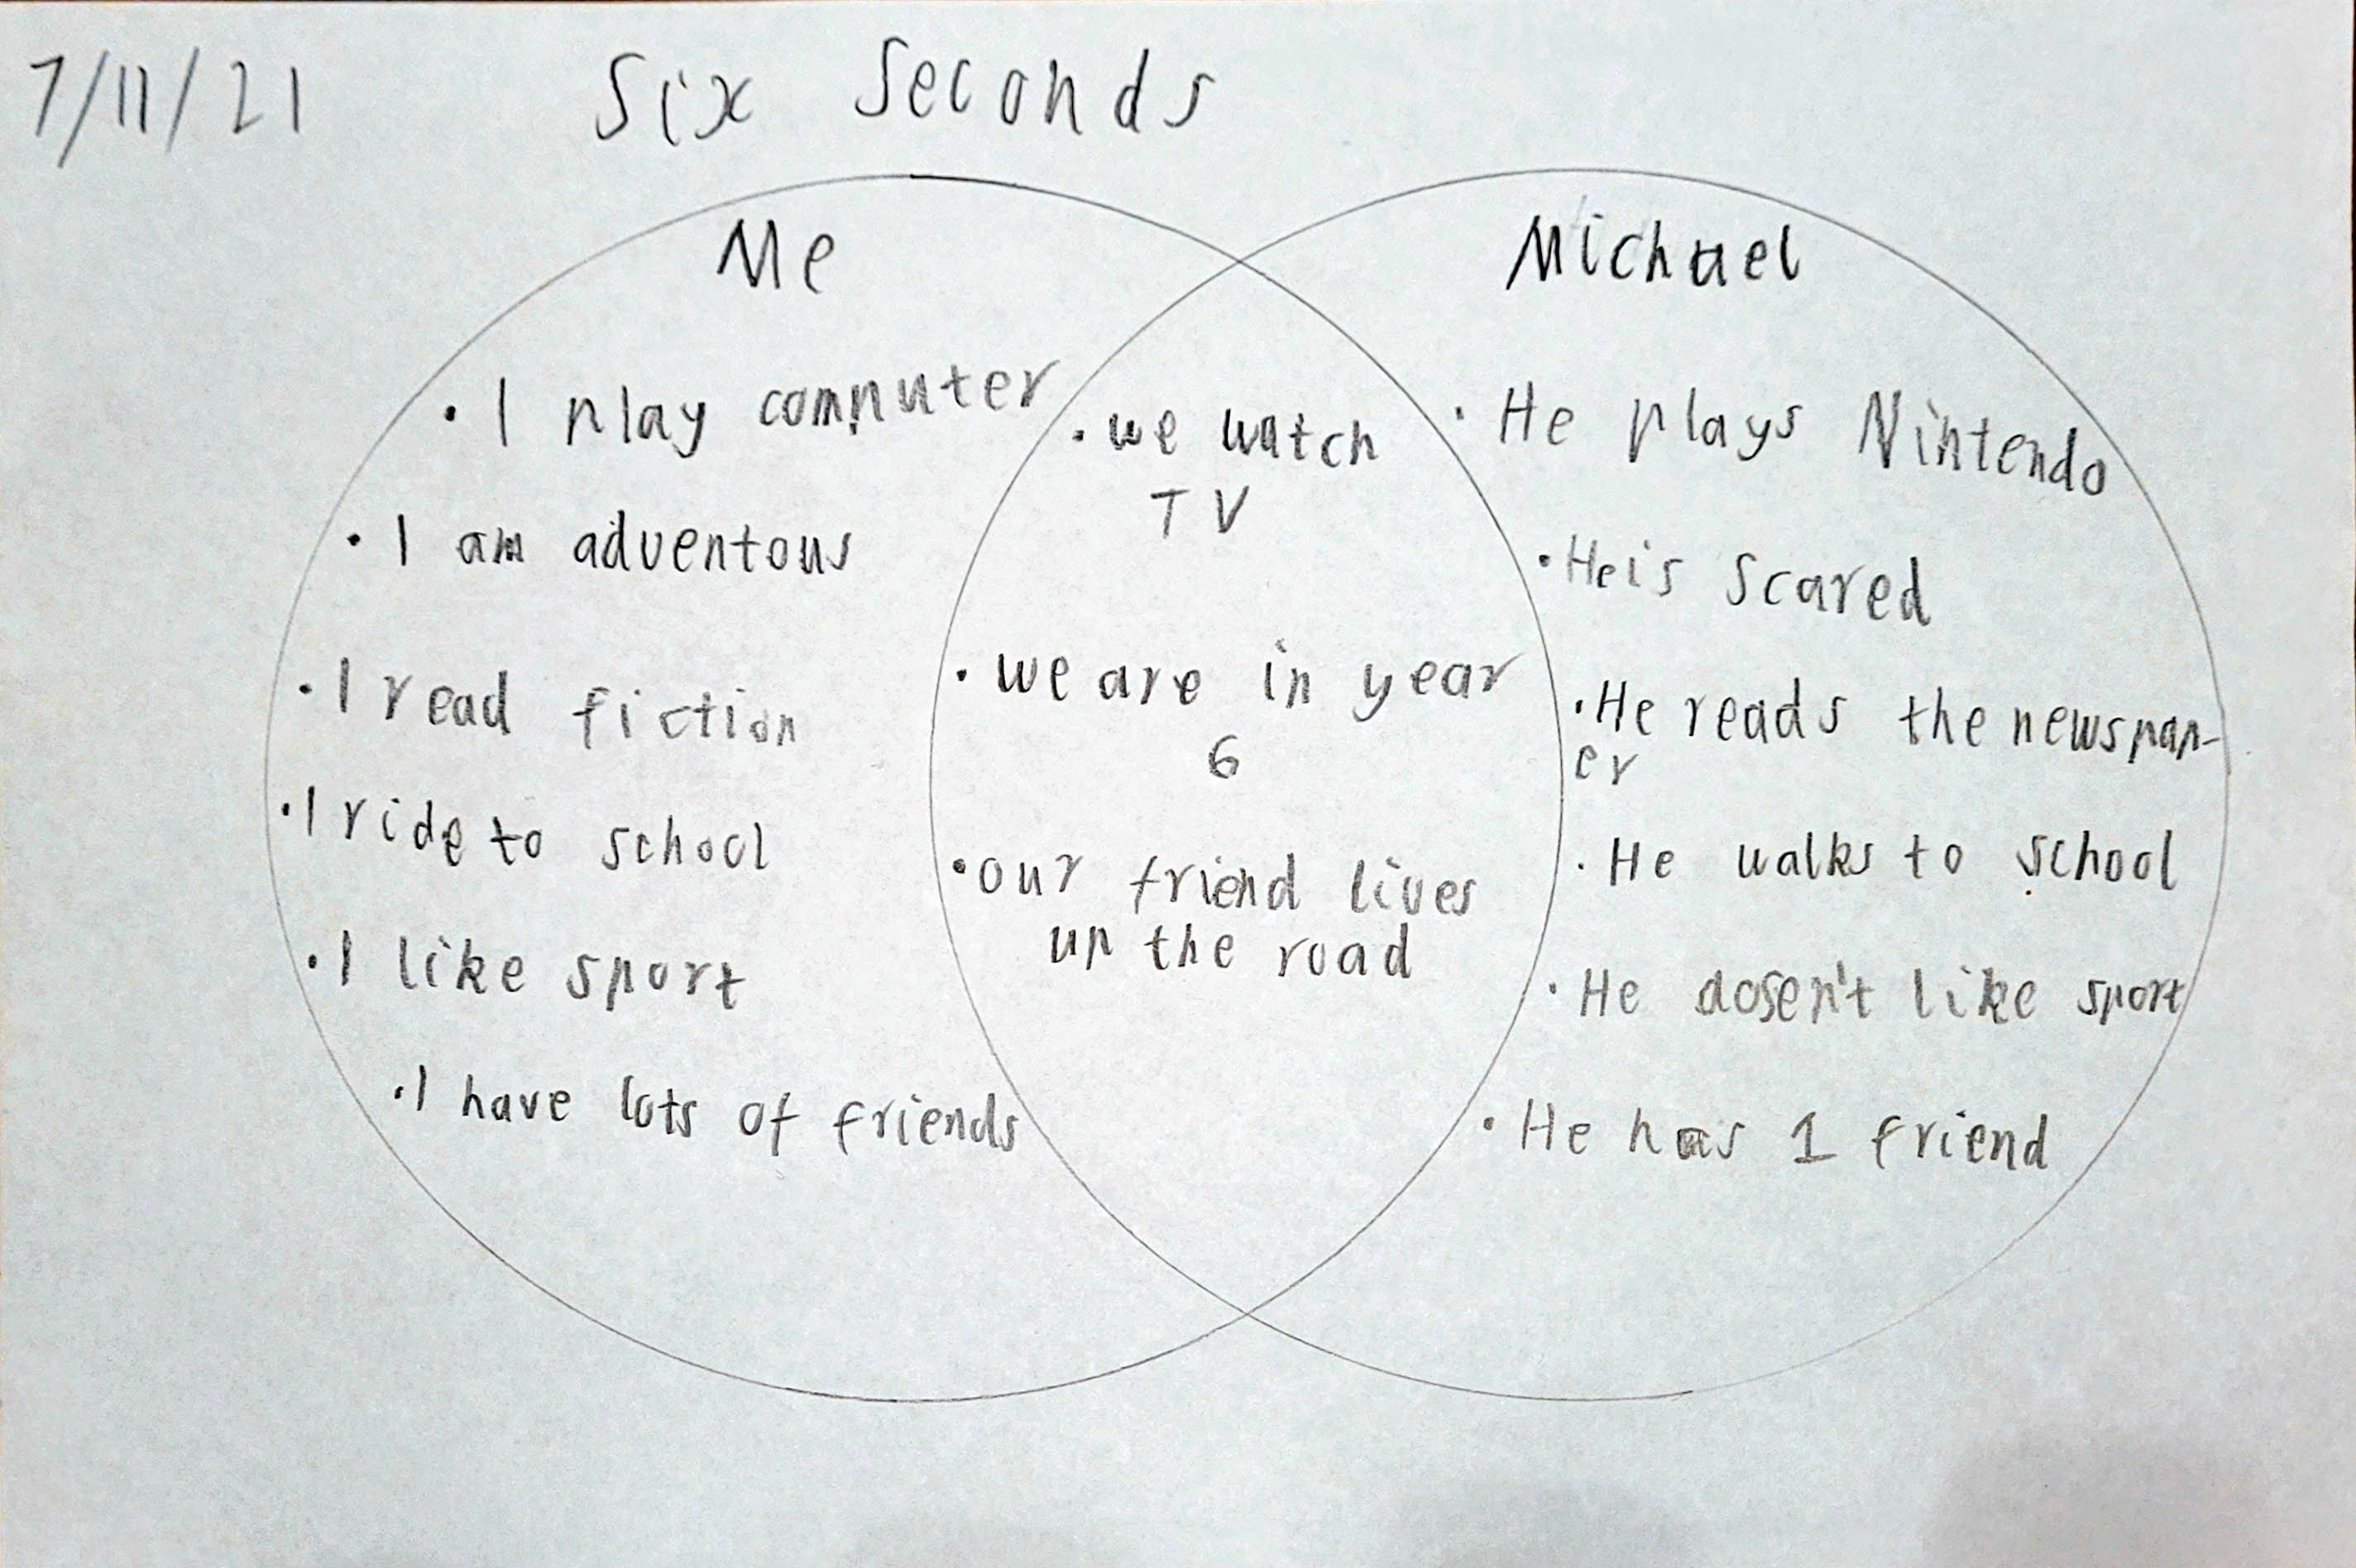 7/11/21
Six Seconds
Me
• I play computer
• I am adventous
• I read fiction
• I ride to school
• I like sport
• I have lots of friends
• we watch
TV
• we are in year
6
• our friend lives
up the road
Michael
• He plays Nintendo
• He is scared
• He reads the newspap-
er
• He walks to school
• He dosen't like sport
• He has 1 friend